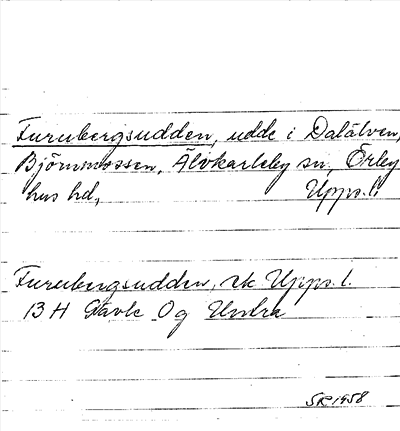 Furubergsudden, udde i Dalälven,
Björnmossen, Älvkarleby sn, Örby
hus hd, Upps. l.
Furubergsudden, ek Upps. l.
13 H Gävle Og Undra
SR 1958